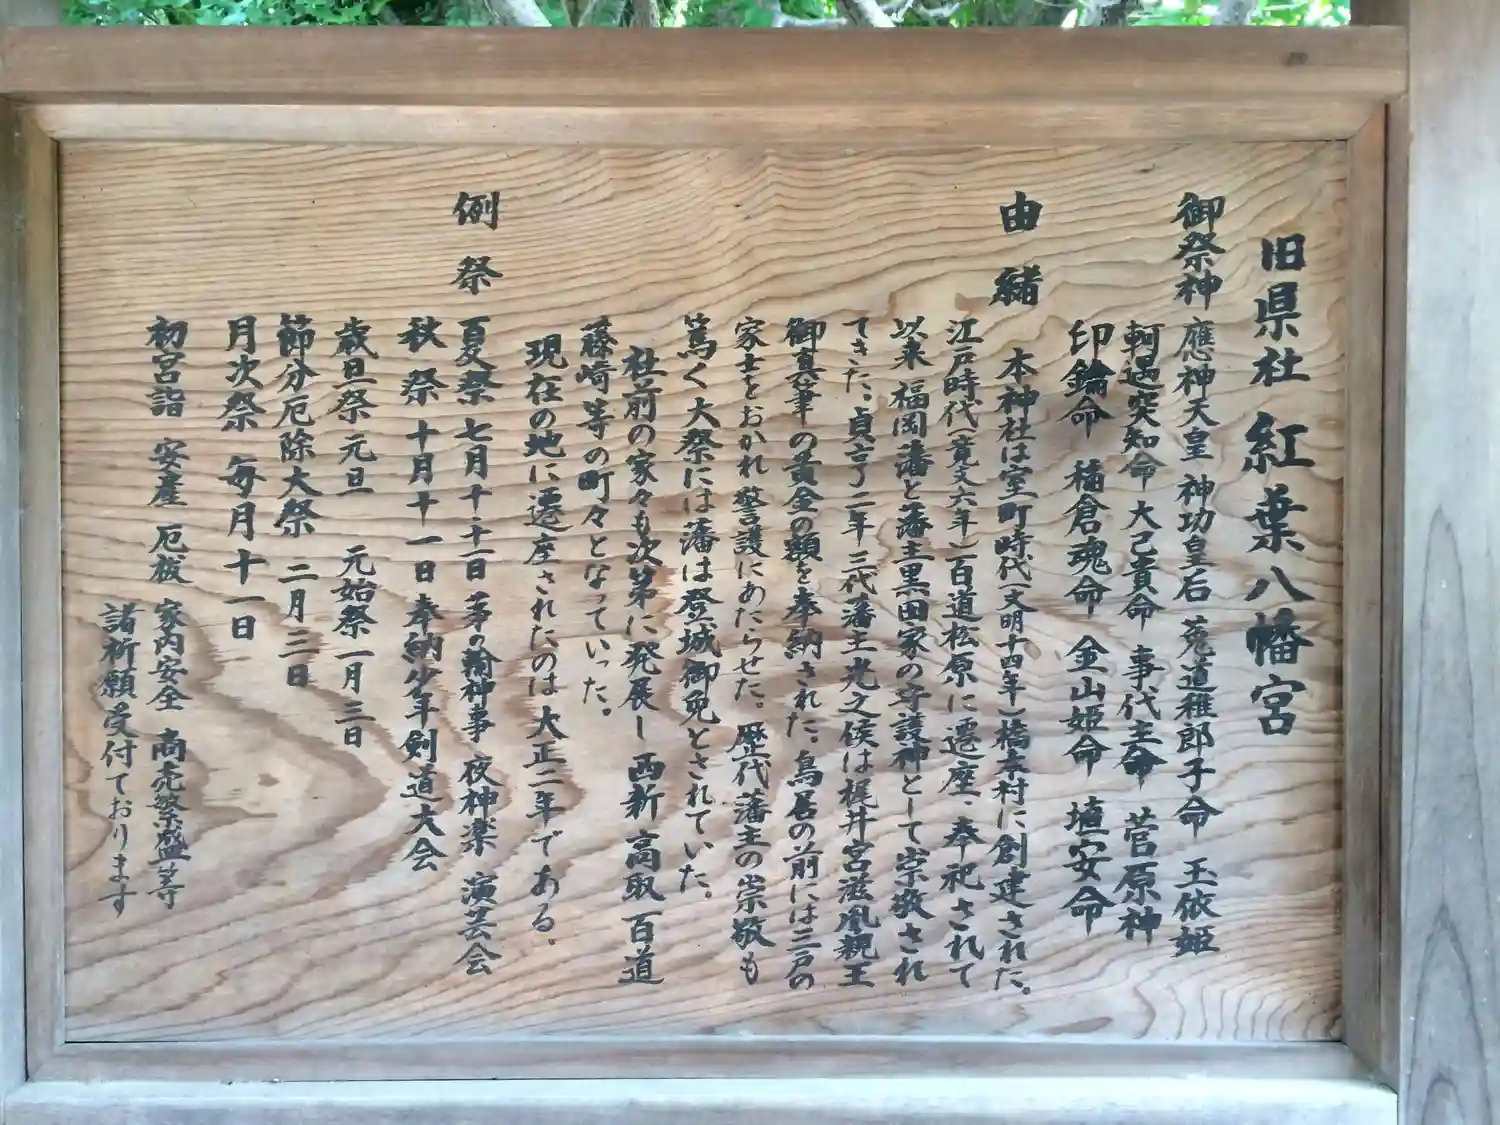 旧県社 紅葉八幡宮
御祭神 應神天皇 神功皇后 菟道稚郎子命 玉依姫
軻遇突知命 大己貴命 事代主命 菅原神
印鑰命 稲倉魂命 金山姫命 埴安命
由緒
本神社は室町時代(文明十四年)橋本村に創建された。
江戸時代(寛文六年)百道松原に遷座、奉祀されて
以来 福岡藩と藩主黒田家の守護神として崇敬され
てきた。貞享二年 三代藩主光之侯は梶井宮滋胤親王
御真筆の黄金の額を奉納された。鳥居の前には三戸の
家士をおかれ警護にあたらせた。歴代藩主の崇敬も
篤く大祭には藩は登城御免とされていた。
社前の家々も次第に発展し 西新 高取 百道
藤崎等の町々となっていった。
現在の地に遷座されたのは大正二年である。
例祭
夏祭 七月十・十一日 茅の輪神事 夜神楽 演芸会
秋祭 十月十一日 奉納少年剣道大会
歳旦祭 元旦 元始祭 一月三日
節分厄除大祭 二月三日
月次祭 毎月十一日
初宮詣 安産 厄祓 家内安全 商売繁盛等
諸祈願受付ております